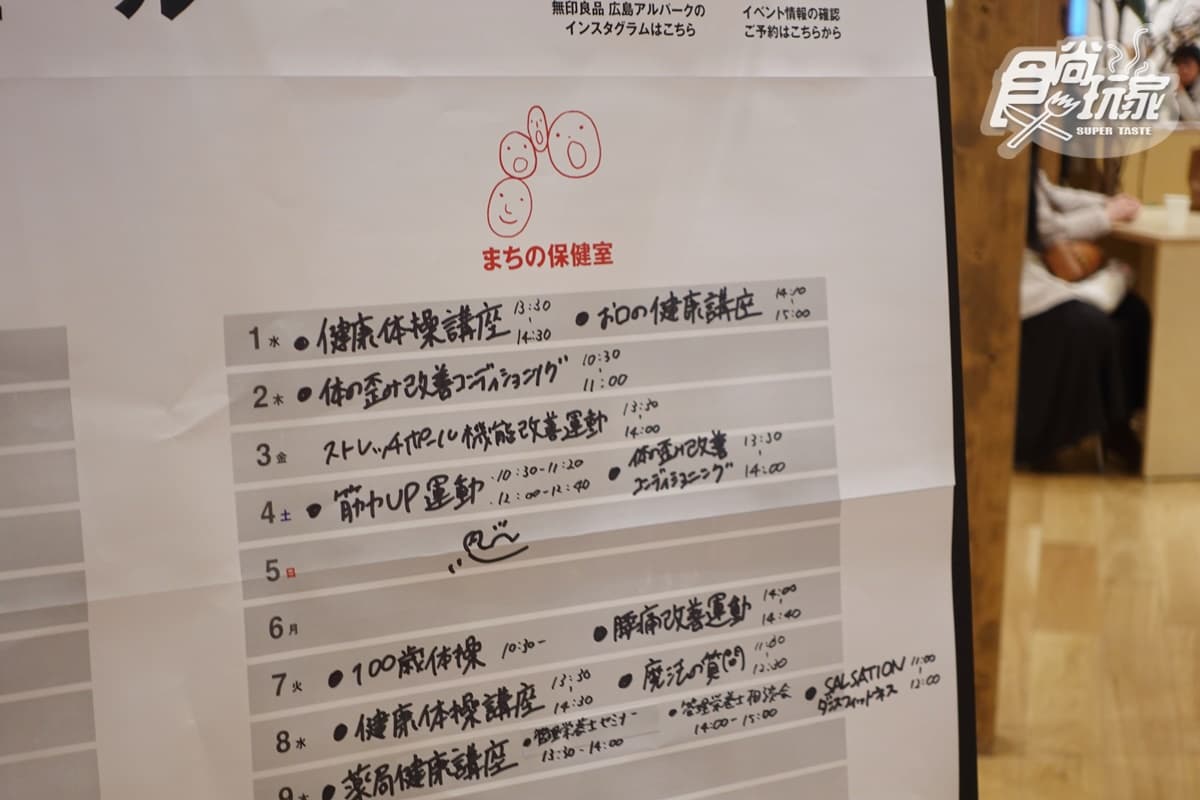 無印良品 広島アルパークの
インスタグラムはこちら
イベント情報の確認
ご予約はこちらから
食尚玩家
SUPER TASTE
まちの保健室
1 水 ●健康体操講座 13:30 14:30 ●お口の健康講座 14:00 15:00
2 木 ●体の歪み改善コンディショニング 10:30 11:00
3 金 ストレッチポール機能改善運動 13:30 14:00
4 土 ●筋力UP運動 ・10:30-11:20 ・12:00-12:40 ●体の歪み改善 コンディショニング 13:30 14:00
5 日
6 月
7 火 ●100歳体操 10:30- ●腰痛改善運動 14:00 14:40
8 水 ●健康体操講座 13:30 14:30 ●魔法の質問 11:30 12:30
9 木 ●薬局健康講座 ●管理栄養士セミナー 13:30-14:00 ●管理栄養士相談会 14:00-15:00 ●SALSATION ダンスフィットネス 11:00 12:00